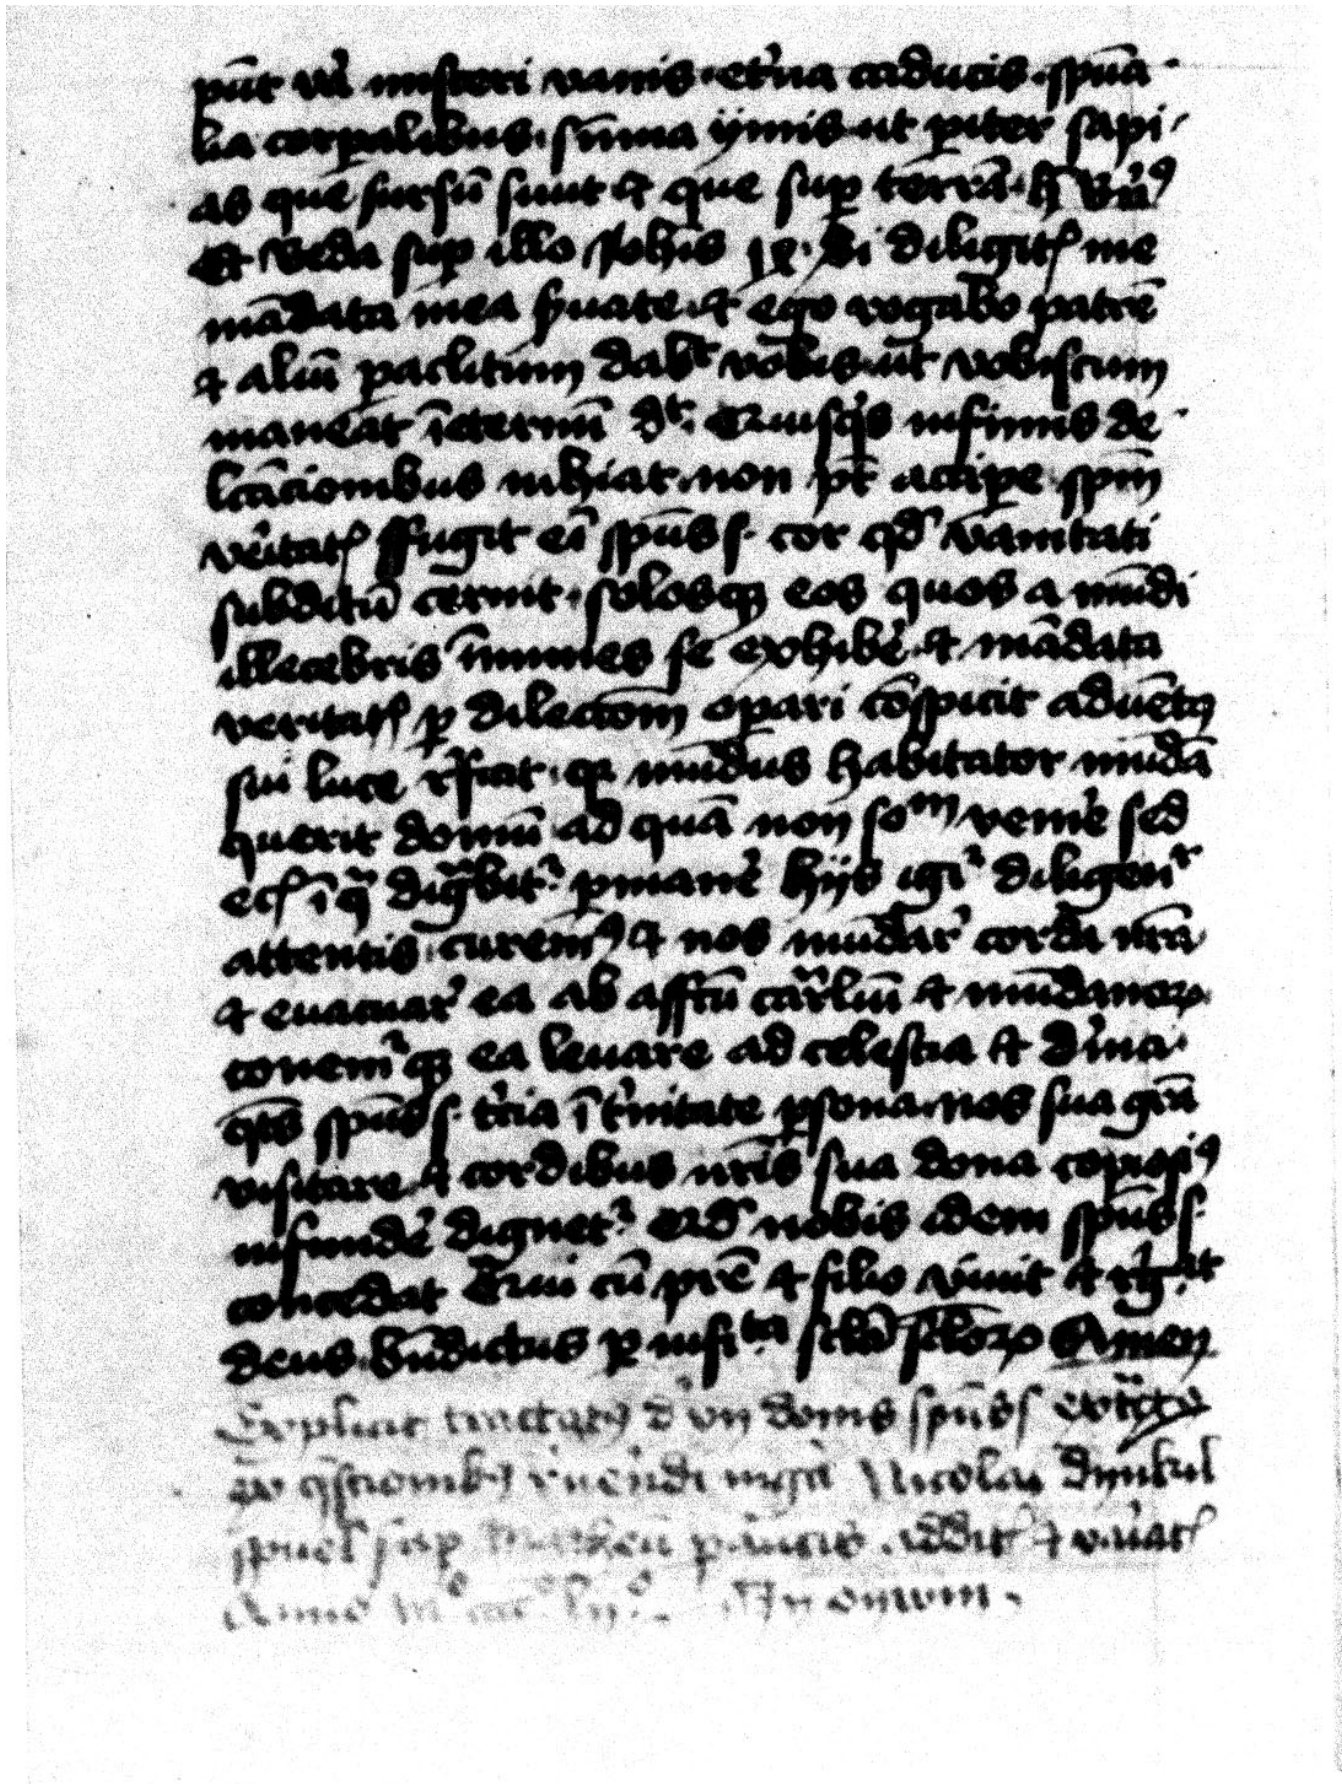 pn̄t vˀa misceri vanis · etˀna caducis · sp̄ua
lia corꝑalibus · sūma ymis ut pariter sapi
as que sursū sunt ⁊ que suꝑ terrā · h̄
Et Beda suꝑ illo Joh̄is · Si diligitꝭ me
mādata mea ẜuate ⁊ ego rogabo patrē
⁊ aliū paclitum dabit vobis ut vobiscum
maneat īeternū dt · Quisqˀs infimis de
lc̄acionibus inhiat non pt̄ accipe sp̄m
vˀitatꝭ ffugit eī sp̄us s · cor qd̄ vanitati
subditū cernit · solosqꝫ eos quos a mūdi
illecebris īmunes se exhibeˀ ⁊ mādata
veritatꝭ ꝑ dilectōem oꝑari cōspicit
sui luce · mūdus habitator mūdā
querit domū ad quā non soᵐ veniˀe sed
ī qᵃ digᵃbitˀ ꝑmanēˀ hijs igiˀ diligenˀ
attentis curemꝰ ⁊ nos mūdarˀ corda nr̄a
⁊ euacuarˀ ea ab affcū carˀliū ⁊ mūdanoꝝ
ea leuare ad celestia ⁊ diˀna
qtˀs sp̄us s · tˀcia ī tˀnitate ꝑsona nos sua grā
visitare ⁊ cordibus nr̄is sua dona copiosiꝰ
infundeˀ dignetˀ Qd̄ nobis idem sp̄us s ·
concedat Qui cū pr̄e ⁊ filio viuit ⁊ rˀgˀat
deus bn̄dictus ꝑ infiᵗᵃ sclā scl̄oꝝ Amen
Explicit tractatꝰ d vii donis sp̄us s
ex qˀstionibꝰ mgrī Nicolai Dinkul
spuel suꝑ Matheū paucis additꝭ ⁊
Anno